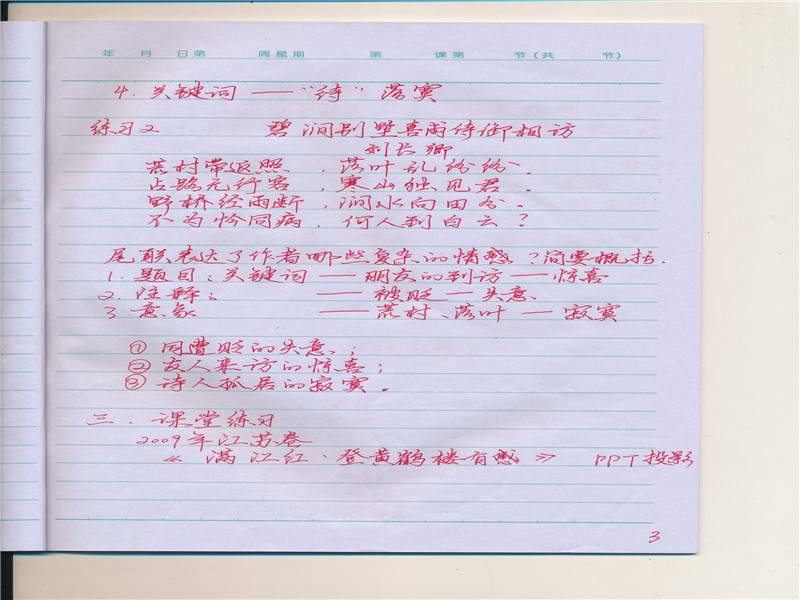 年 月 日第 周星期 第 课第 节(共 节)
4. 关键词 ——"诗" 落寞
练习2 碧涧别墅喜雨侍御相访
刘长卿
荒村带返照，落叶乱纷纷。
占路无行客，寒山独见君。
野桥经雨断，涧水向田分。
不为怜同病，何人到白云？
尾联表达了作者哪些复杂的情感？简要概括.
1. 题目：关键词 —— 朋友的到访 —— 惊喜
2. 注释： —— 被贬 — 失意、
3. 意象 —— 荒村、落叶 — 寂寞
① 同遭贬的失意；
② 友人来访的惊喜；
③ 诗人孤居的寂寞。
三. 课堂练习
2009年江苏卷
《满江红·登黄鹤楼有感》 PPT投影
3